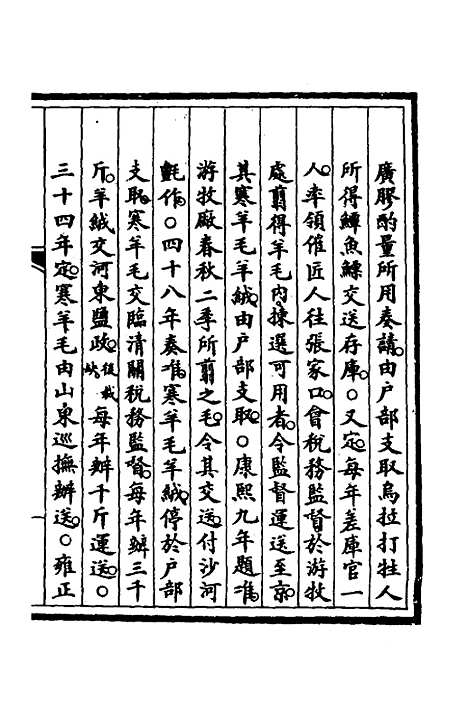 廣膠酌量所用奏請。由戶部支取烏拉打牲人
所得鱘魚鰾交送存庫。○又定。每年差庫官一
人。率領催匠人往張家口。會稅務監督於游牧
處。剪得羊毛內揀選可用者。令監督運送至京。
其寒羊毛羊絨。由戶部支取。○康熙九年題准。
游牧廠春秋二季所剪之毛。令其交送。付沙河
氈作。○四十八年奏准。寒羊毛羊絨。停於戶部
支取。寒羊毛交臨清關稅務監督。每年辦三千
斤。羊絨交河東鹽政。後裁缺每年辦千斤運送。○
三十四年定。寒羊毛由山東巡撫辦送。○雍正